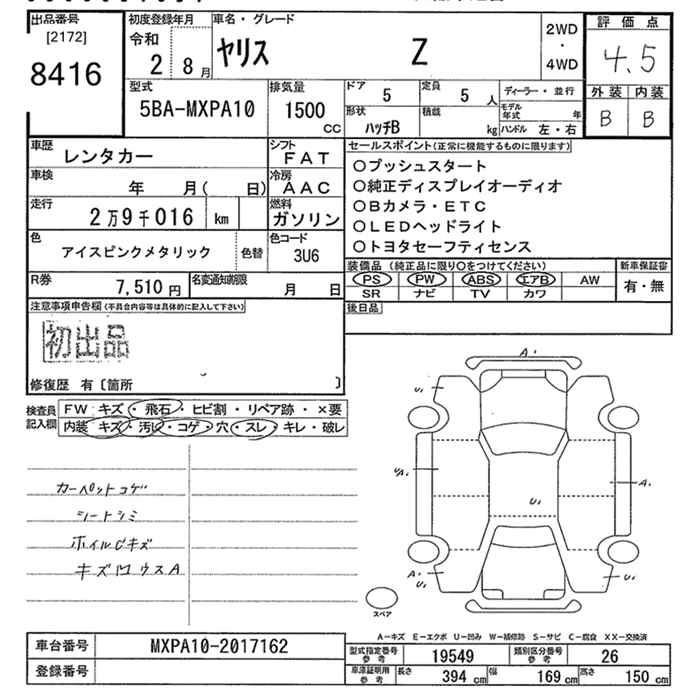 出品番号 初度登録年月 車名・グレード 評価点
[2172] 令和 2WD
8416 2 8月 ヤリス Z ・ 4.5
4WD
型式 排気量 ドア 5 定員 5人 ディーラー・並行 外装 内装
5BA-MXPA10 1500 CC 形状 ハッチB 積載 kg モデル年式 年 B B
ハンドル 左・右
車歴 レンタカー シフト FAT セールスポイント(正常に機能するものに限ります)
車検 年 月( 日) 冷房 AAC ○プッシュスタート
走行 2万9千016 km 燃料 ガソリン ○純正ディスプレイオーディオ
○Bカメラ・ETC
色 アイスピンクメタリック 色替 色コード 3U6 ○LEDヘッドライト
○トヨタセーフティセンス
R券 7,510円 名変通知期限 月 日 装備品(純正品に限り○をつけてください) 新車保証書
PS PW ABS エアB AW 有・無
SR ナビ TV カワ
注意事項申告欄(不具合内容等は具体的に記入して下さい) 後日品
初出品
修復歴 有〔箇所 〕
検査員記入欄 FW キズ・飛石・ヒビ割・リペア跡・×要
内装 キズ・汚レ・コゲ・穴・スレ・キレ・破レ
カーペットコゲ
シートシミ
ホイルCキズ
A1
U1
U1
U/A1
A1
U1
A1
U1
U1
スペア
A-キズ E-エクボ U-凹み W-補修跡 S-サビ C-腐食 XX-交換済
車台番号 MXPA10-2017162
登録番号
型式指定番号参考 19549 類別区分番号参考 26
車庫証明用参考 長さ 394cm 幅 169cm 高さ 150cm